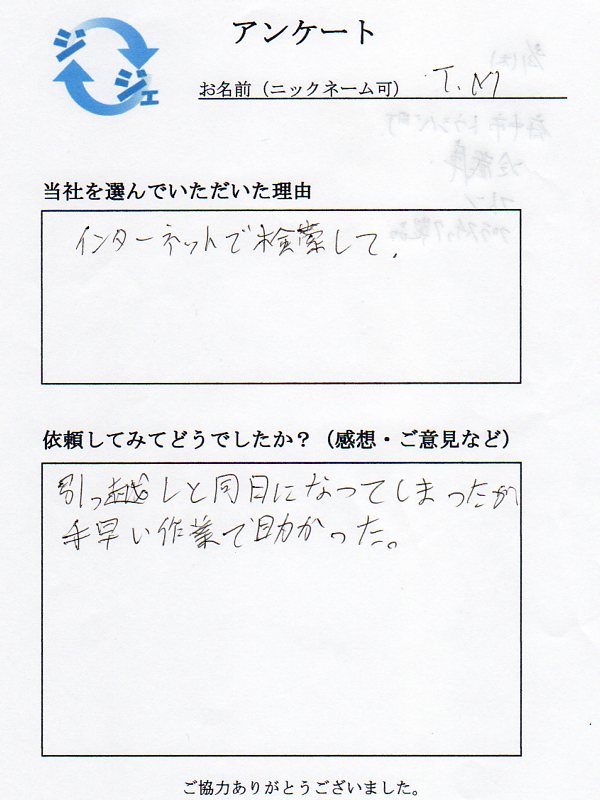 アンケート
ジジェ
お名前（ニックネーム可） T.M
当社を選んでいただいた理由
インターネットで検索して.
依頼してみてどうでしたか？（感想・ご意見など）
引っ越しと同日になってしまったが
手早い作業で助かった。
ご協力ありがとうございました。